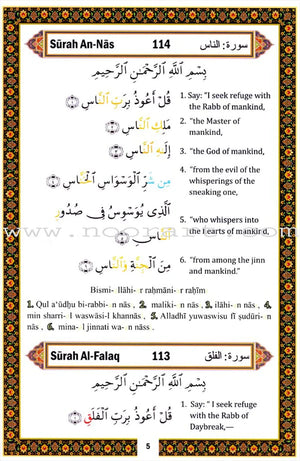 Sūrah An-Nās 114 سورة: الناس
بِسْمِ اللَّهِ الرَّحْمَٰنِ الرَّحِيمِ
قُلْ أَعُوذُ بِرَبِّ النَّاسِ ۝
1. Say: "I seek refuge with the Rabb of mankind,
مَلِكِ النَّاسِ ۝
2. "the Master of mankind,
إِلَٰهِ النَّاسِ ۝
3. "the God of mankind,
مِن شَرِّ الْوَسْوَاسِ الْخَنَّاسِ ۝
4. "from the evil of the whisperings of the sneaking one,
الَّذِي يُوَسْوِسُ فِي صُدُورِ
النَّاسِ ۝
5. "who whispers into the hearts of mankind,
مِنَ الْجِنَّةِ وَالنَّاسِ ۝
6. "from among the jinn and mankind."
www.noorart.com
Bismi- llāhi- r raḥmāni- r raḥīm
1. Qul a'ūdhu bi-rabbi- n nās , 2. maliki- n nās . 3. ilāhi- n nās , 4.
min sharri- l waswāsi-l khannās . 5. Alladhī yuwaswisu fī ṣudūri- n
nās , 6. mina- l jinnati wa- n nāss .
Sūrah Al-Falaq 113 سورة: الفلق
بِسْمِ اللَّهِ الرَّحْمَٰنِ الرَّحِيمِ
قُلْ أَعُوذُ بِرَبِّ الْفَلَقِ ۝
1. Say: " I seek refuge with the Rabb of Daybreak,—
5